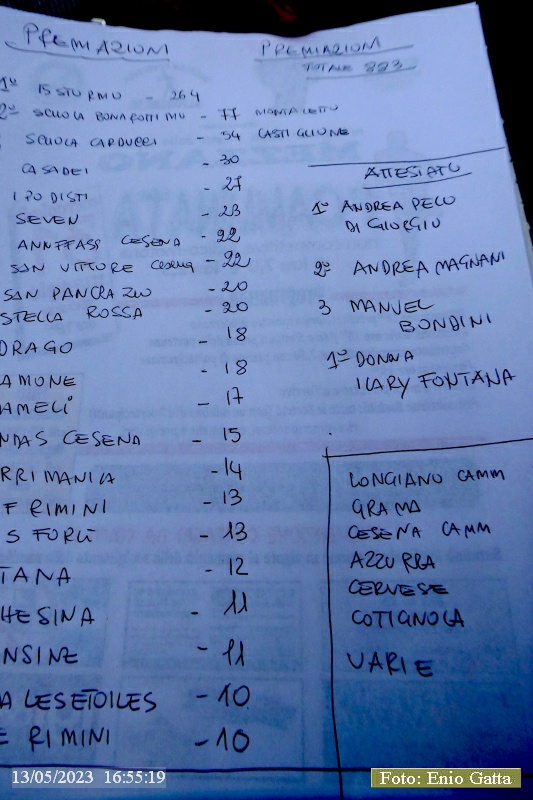 PREMIAZIONI
1º 15 STORMO - 264
2º SCUOLA BONARROTI MO - 77 MONTALETTO
SCUOLA CARDUCCI - 54 CASTIGLIONE
CASADEI - 30
IPODISTI - 27
SEVEN - 23
ANNFFASS CESENA - 22
SAN VITTORE CESENA - 22
SAN PANCRAZIO - 20
STELLA ROSSA - 20
DRAGO - 18
AMONE - 18
AMELI - 17
NDAS CESENA - 15
RRIMANIA - 14
F RIMINI - 13
S FORLÌ - 13
TANA - 12
HESINA - 11
NSINE - 11
A LES ETOILES - 10
E RIMINI - 10
PREMIAZIONI
TOTALE 883
ATTESTATO
1º ANDREA PECO
DI GIORGIO
2º ANDREA MAGNANI
3 MANUEL
BONDINI
1º DONNA
ILARY FONTANA
LONGIANO CAMM
GRAMA
CESENA CAMM
AZZURRA
CERVESE
COTIGNOLA
VARIE
13/05/2023 16:55:19
Foto: Enio Gatta